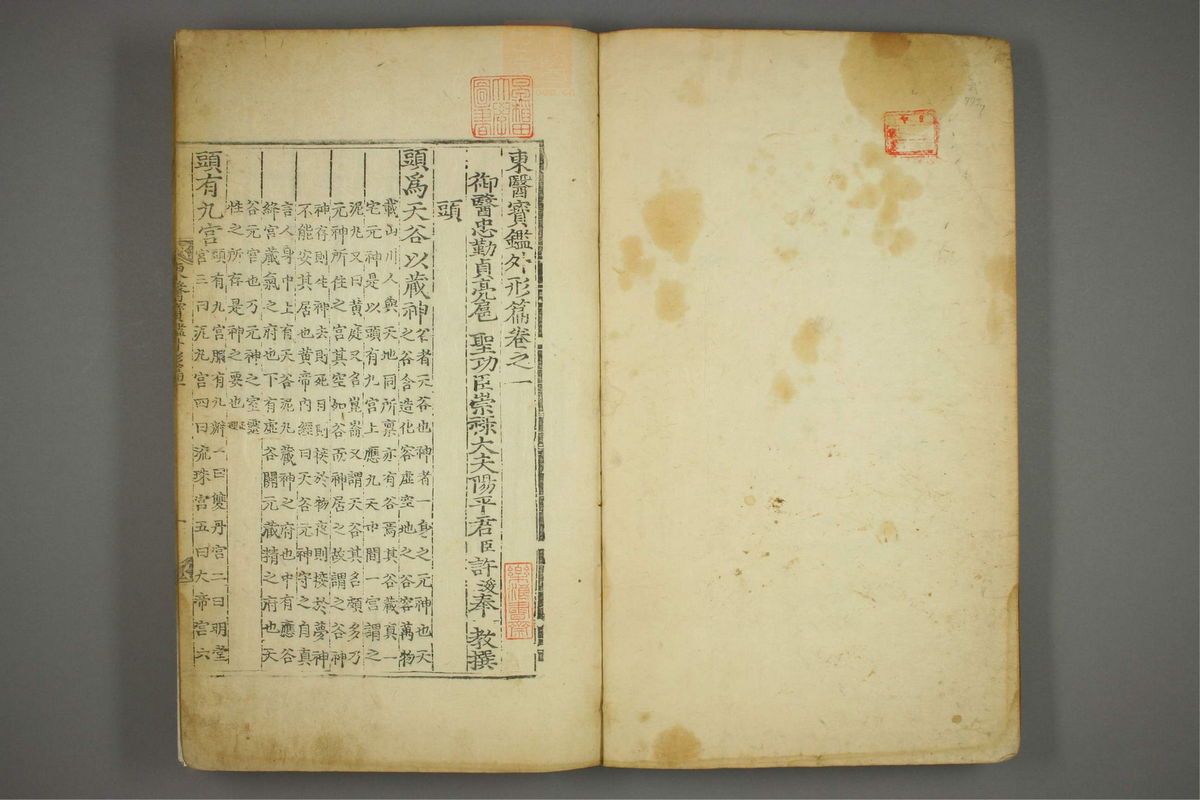 東醫寶鑑外形篇卷之一
御醫忠勤貞亮扈 聖功臣崇祿大夫陽平君臣許浚奉 教撰
頭
頭爲天谷以藏神
谷者元谷也神者一身之元神也天
之谷含造化容虛空地之谷容萬物
載山川人與天地同所禀亦有谷焉其谷藏真一
宅元神是以頭有九宮上應九天中間一宮謂之
泥丸又曰黃庭又名崑崙又謂天谷其名頗多乃
元神所住之宮其空如谷而神居之故謂之谷神
神存則生神去則死日則接於物夜則接於夢神
不能安其居也黃帝內經曰天谷元神守之自真
言人身中上有天谷泥丸藏神之府也中有應谷
絳宮藏氣之府也下有虛谷關元藏精之府也天
谷元宮也乃元神之室靈
性之所存是神之要也
頭有九宮
頭有九宮腦有九瓣一曰雙丹宮二曰明堂
宮三曰泥丸宮四曰流珠宮五曰大帝宮六
樂浪書齋